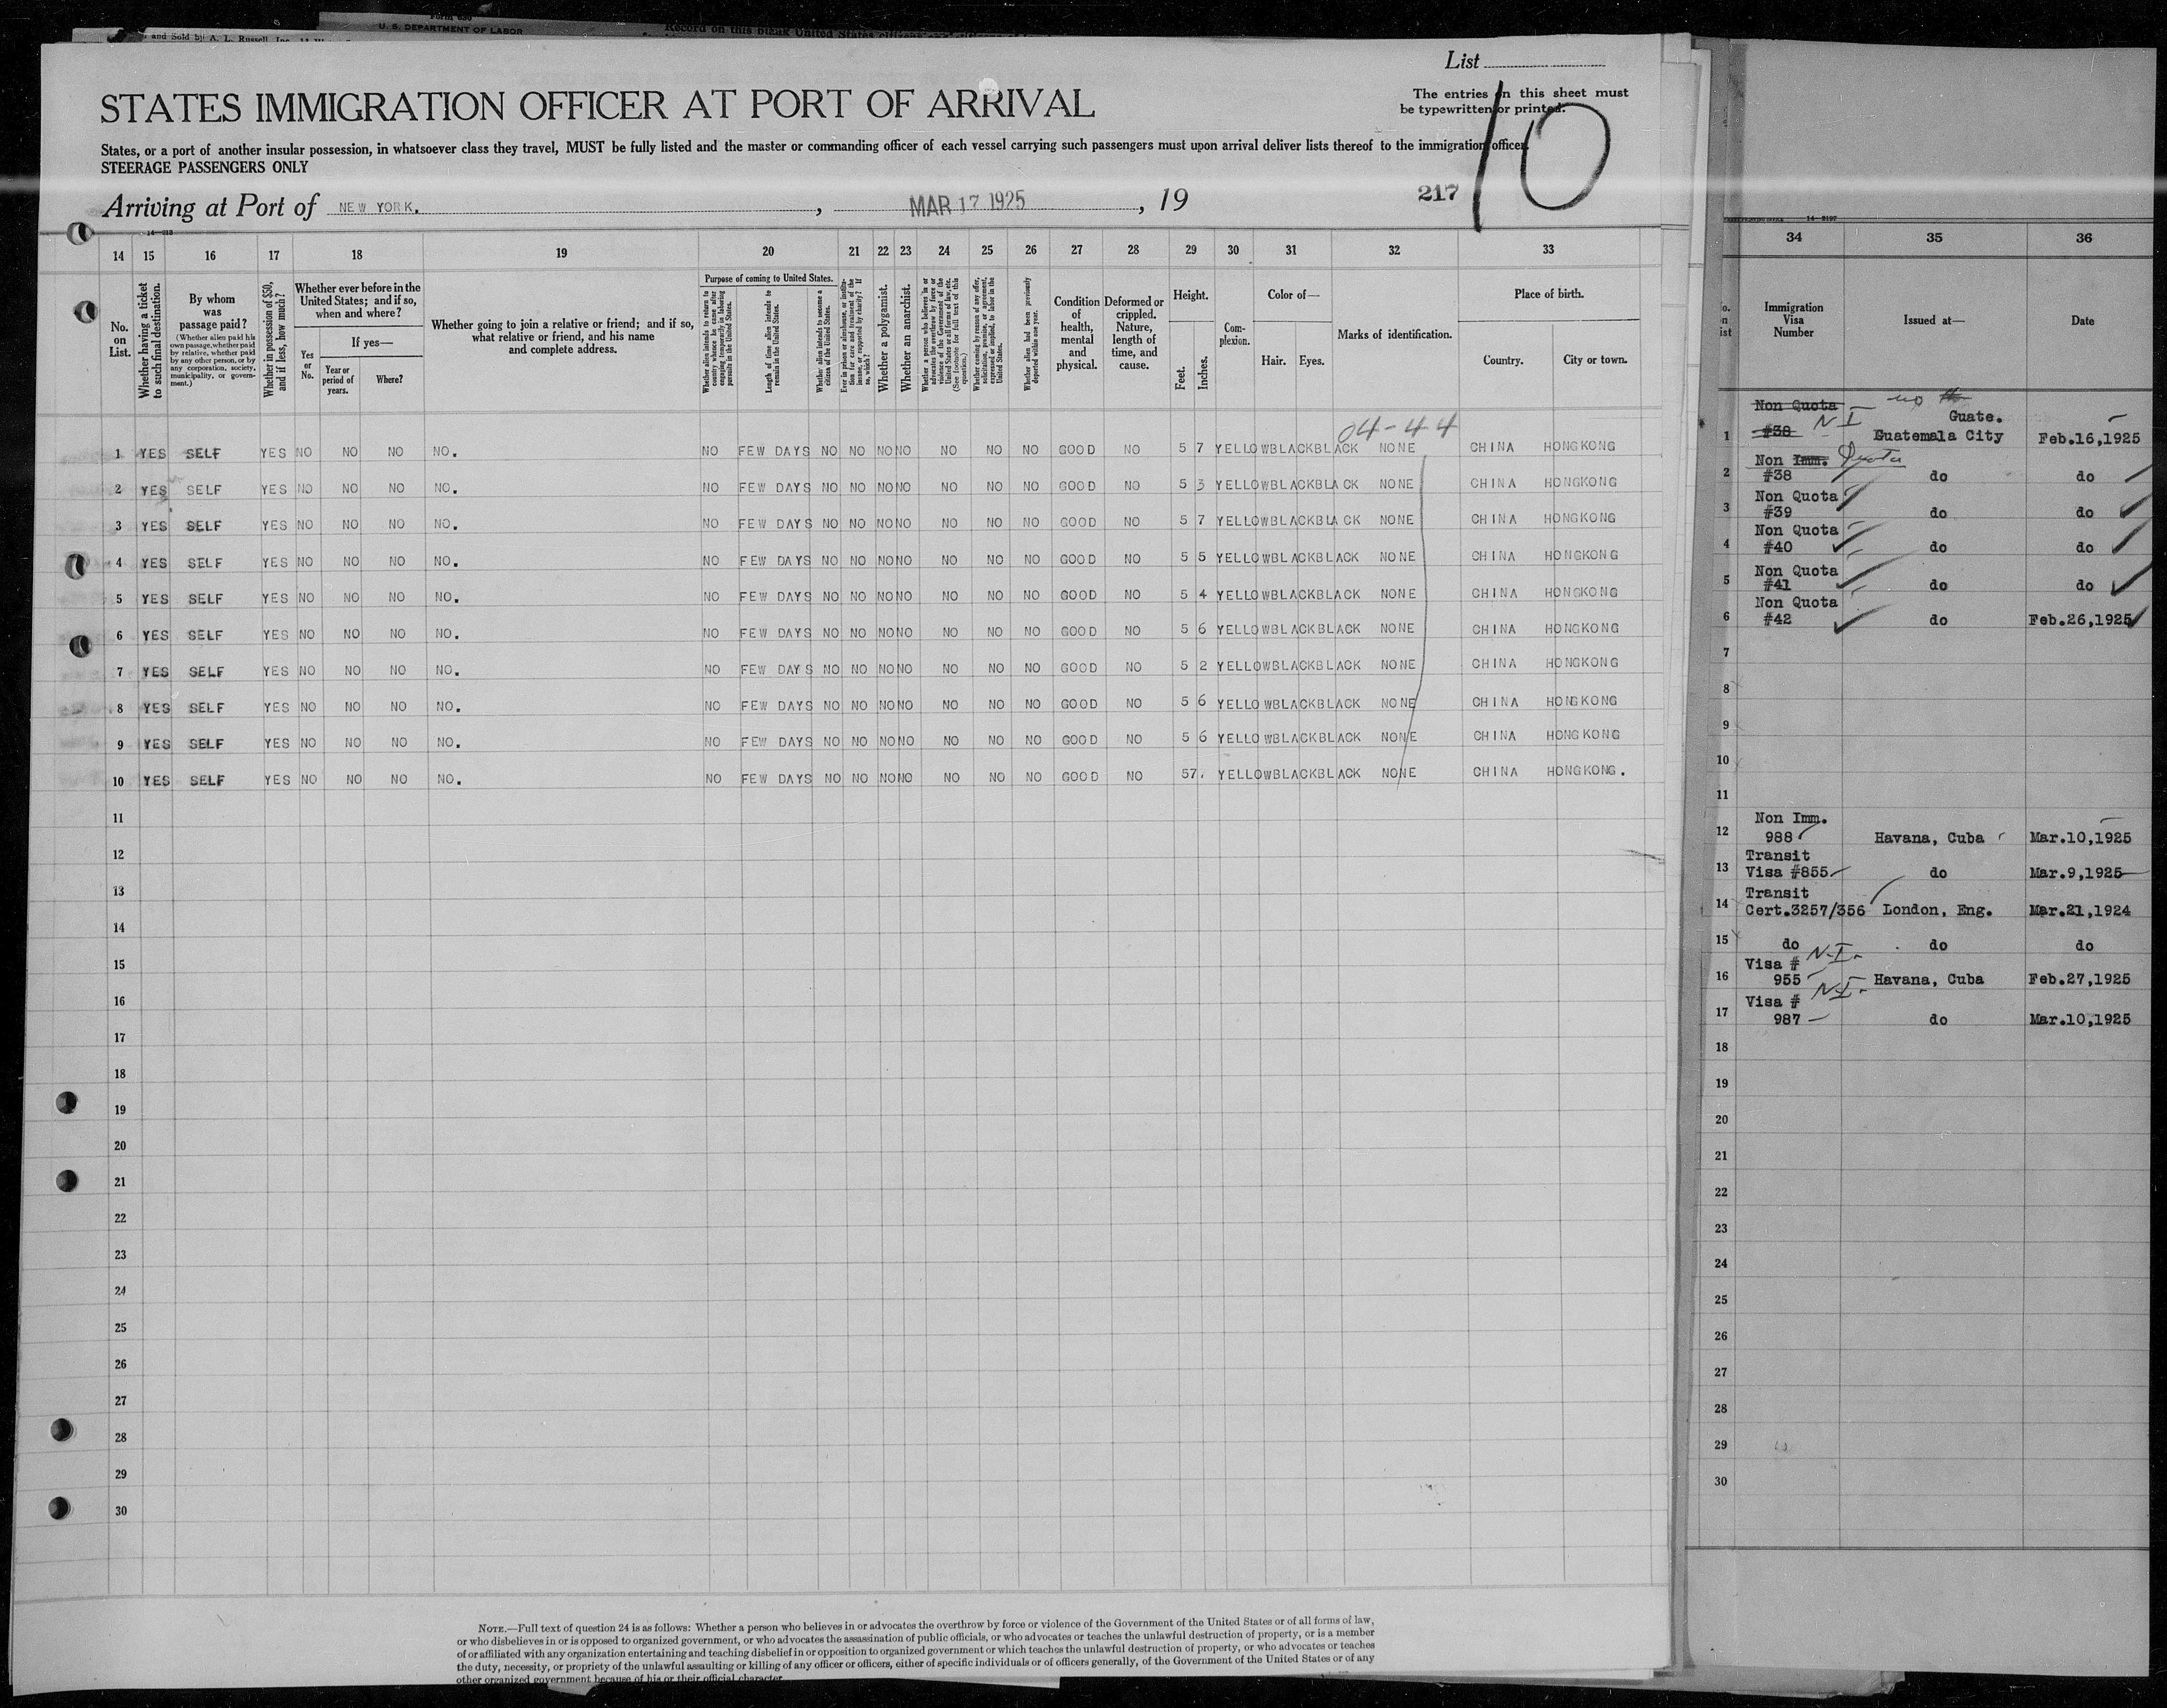 Form 630
U. S. DEPARTMENT OF LABOR
and Sold by A. L. Russell, Inc.
Record on this blank United States citizens
List
STATES IMMIGRATION OFFICER AT PORT OF ARRIVAL
The entries on this sheet must
be typewritten or printed.
10
States, or a port of another insular possession, in whatsoever class they travel, MUST be fully listed and the master or commanding officer of each vessel carrying such passengers must upon arrival deliver lists thereof to the immigration officer.
STEERAGE PASSENGERS ONLY
Arriving at Port of NEW YORK. , MAR 17 1925 , 19
217
14 15 16 17 18 19 20 21 22 23 24 25 26 27 28 29 30 31 32 33
No. on List.
Whether having a ticket to such final destination.
By whom was passage paid?
(Whether alien paid his own passage, whether paid by relative, whether paid by any other person, or by any corporation, society, municipality, or government.)
Whether in possession of $50, and if less, how much?
Whether ever before in the United States; and if so, when and where?
Yes or No.
If yes—
Year or period of years.
Where?
Whether going to join a relative or friend; and if so, what relative or friend, and his name and complete address.
Purpose of coming to United States.
Whether alien intends to return to country whence he came after engaging temporarily in laboring pursuits in the United States.
Length of time alien intends to remain in the United States.
Whether alien intends to become a citizen of the United States.
Ever in prison or almshouse, or institution for care and treatment of the insane, or supported by charity? If so, which?
Whether a polygamist.
Whether an anarchist.
Whether a person who believes in or advocates the overthrow by force or violence of the Government of the United States or all forms of law, etc. (See footnote for full text of this question.)
Whether coming by reason of any offer, solicitation, promise, or agreement, expressed or implied, to labor in the United States.
Whether alien had been previously deported within one year.
Condition of health, mental and physical.
Deformed or crippled. Nature, length of time, and cause.
Height.
Feet.
Inches.
Complexion.
Color of—
Hair.
Eyes.
Marks of identification.
Place of birth.
Country.
City or town.
04-44
1 YES SELF YES NO NO NO NO. NO FEW DAYS NO NO NO NO NO NO NO GOOD NO 5 7 YELLOW BLACK BLACK NONE CHINA HONGKONG
2 YES SELF YES NO NO NO NO. NO FEW DAYS NO NO NO NO NO NO NO GOOD NO 5 3 YELLOW BLACK BLACK NONE CHINA HONGKONG
3 YES SELF YES NO NO NO NO. NO FEW DAYS NO NO NO NO NO NO NO GOOD NO 5 7 YELLOW BLACK BLACK NONE CHINA HONGKONG
4 YES SELF YES NO NO NO NO. NO FEW DAYS NO NO NO NO NO NO NO GOOD NO 5 5 YELLOW BLACK BLACK NONE CHINA HONGKONG
5 YES SELF YES NO NO NO NO. NO FEW DAYS NO NO NO NO NO NO NO GOOD NO 5 4 YELLOW BLACK BLACK NONE CHINA HONGKONG
6 YES SELF YES NO NO NO NO. NO FEW DAYS NO NO NO NO NO NO NO GOOD NO 5 6 YELLOW BLACK BLACK NONE CHINA HONGKONG
7 YES SELF YES NO NO NO NO. NO FEW DAYS NO NO NO NO NO NO NO GOOD NO 5 2 YELLOW BLACK BLACK NONE CHINA HONGKONG
8 YES SELF YES NO NO NO NO. NO FEW DAYS NO NO NO NO NO NO NO GOOD NO 5 6 YELLOW BLACK BLACK NONE CHINA HONGKONG
9 YES SELF YES NO NO NO NO. NO FEW DAYS NO NO NO NO NO NO NO GOOD NO 5 6 YELLOW BLACK BLACK NONE CHINA HONGKONG
10 YES SELF YES NO NO NO NO. NO FEW DAYS NO NO NO NO NO NO NO GOOD NO 57. YELLOW BLACK BLACK NONE CHINA HONGKONG.
11
12
13
14
15
16
17
18
19
20
21
22
23
24
25
26
27
28
29
30
NOTE.—Full text of question 24 is as follows: Whether a person who believes in or advocates the overthrow by force or violence of the Government of the United States or of all forms of law,
or who disbelieves in or is opposed to organized government, or who advocates the assassination of public officials, or who advocates or teaches the unlawful destruction of property, or is a member
of or affiliated with any organization entertaining and teaching disbelief in or opposition to organized government or which teaches the unlawful destruction of property, or who advocates or teaches
the duty, necessity, or propriety of the unlawful assaulting or killing of any officer or officers, either of specific individuals or of officers generally, of the Government of the United States or of any
other organized government because of his or their official character.
14—3197
34 35 36
Immigration Visa Number
Issued at—
Date
Non Quota NI no Guate.
1 #38 Guatemala City Feb.16,1925
Non Imm. Quota
2 #38 do do
Non Quota
3 #39 do do
Non Quota
4 #40 do do
Non Quota
5 #41 do do
Non Quota
6 #42 do Feb.26,1925
7
8
9
10
11
Non Imm.
12 988 Havana, Cuba Mar.10,1925
Transit
13 Visa #855 do Mar.9,1925
Transit
14 Cert.3257/356 London, Eng. Mar.21,1924
15 do do do
Visa # N-I-
16 955 Havana, Cuba Feb.27,1925
Visa # N-I-
17 987 do Mar.10,1925
18
19
20
21
22
23
24
25
26
27
28
29
30